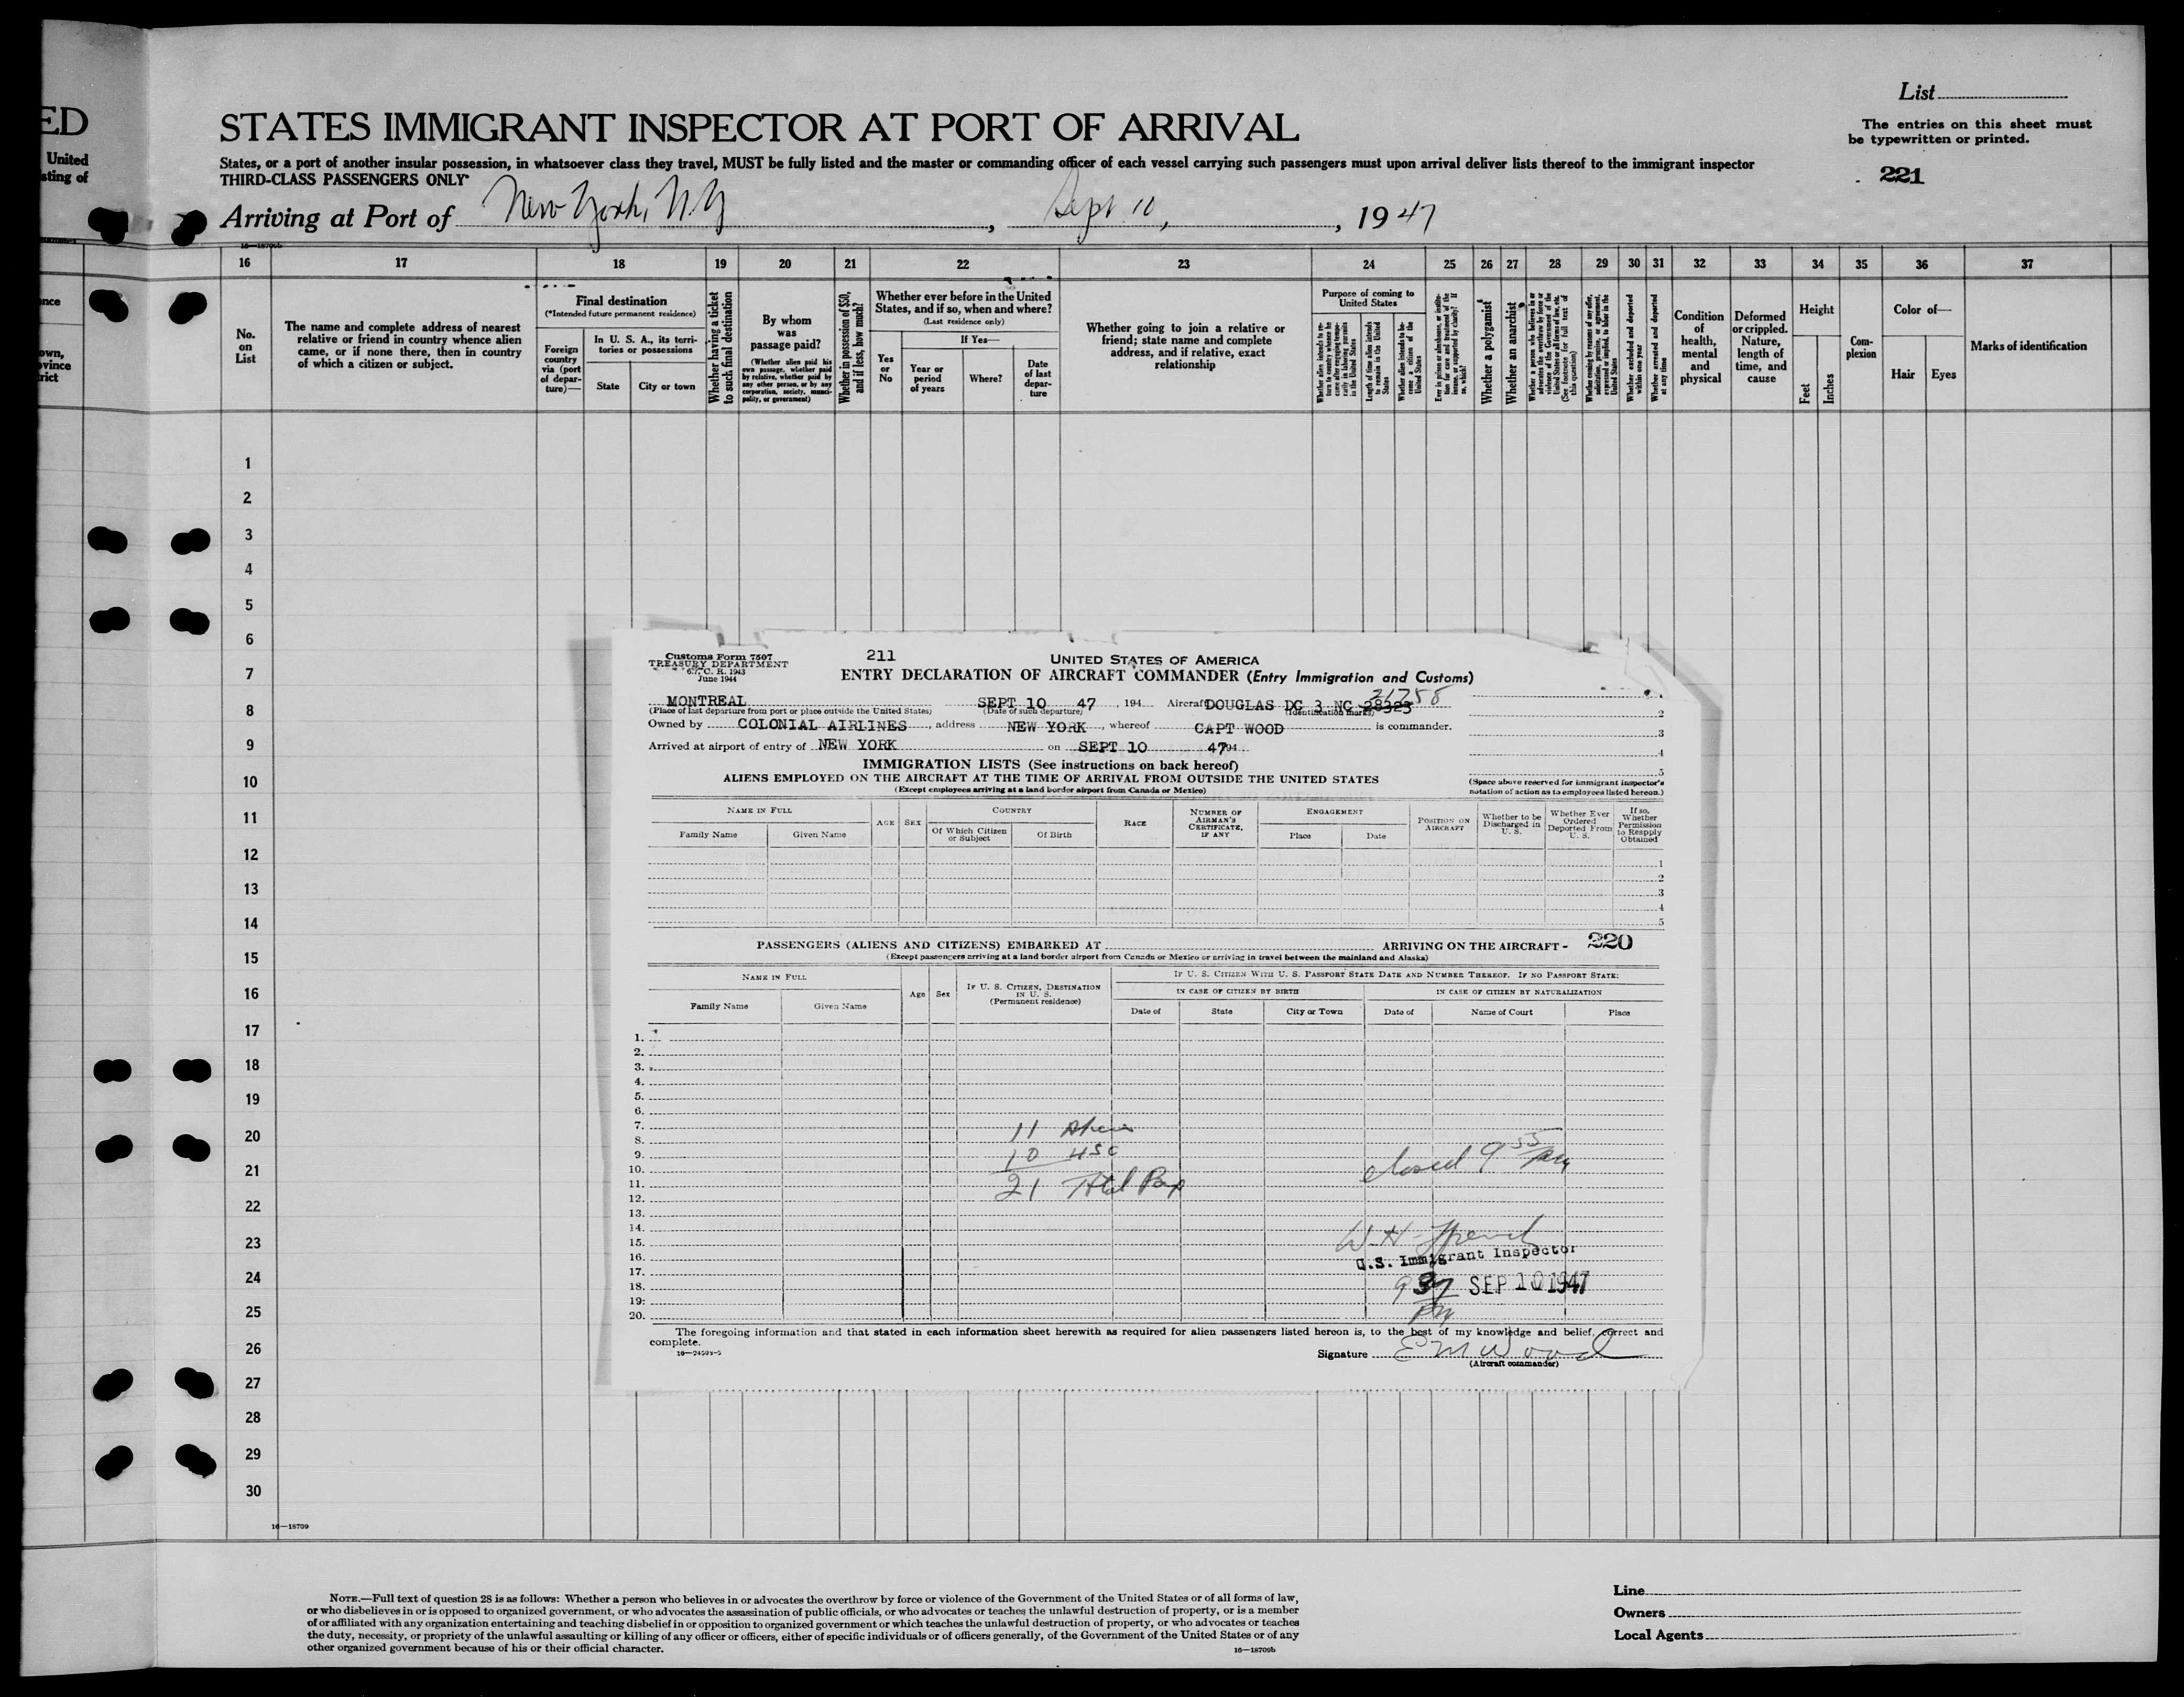 ED
United
sting of
ince
own,
ovince
trict
List
The entries on this sheet must
be typewritten or printed.
221
STATES IMMIGRANT INSPECTOR AT PORT OF ARRIVAL
States, or a port of another insular possession, in whatsoever class they travel, MUST be fully listed and the master or commanding officer of each vessel carrying such passengers must upon arrival deliver lists thereof to the immigrant inspector
THIRD-CLASS PASSENGERS ONLY
Arriving at Port of New York, N.Y , Sept 10, , 1947
16 17 18 19 20 21 22 23 24 25 26 27 28 29 30 31 32 33 34 35 36 37
No.
on
List
The name and complete address of nearest
relative or friend in country whence alien
came, or if none there, then in country
of which a citizen or subject.
Final destination
(*Intended future permanent residence)
Foreign
country
via (port
of depar-
ture)—
In U. S. A., its terri-
tories or possessions
State City or town
Whether having a ticket
to such final destination
By whom
was
passage paid?
(Whether alien paid his
own passage, whether paid
by relative, whether paid by
any other person, or by any
corporation, society, munici-
pality, or government)
Whether in possession of $50,
and if less, how much?
Whether ever before in the United
States, and if so, when and where?
(Last residence only)
Yes
or
No
If Yes—
Year or
period
of years
Where?
Date
of last
depar-
ture
Whether going to join a relative or
friend; state name and complete
address, and if relative, exact
relationship
Purpose of coming to
United States
Whether alien intends to re-
turn to country whence he
came after engaging tempo-
rarily in laboring pursuits
in the United States
Length of time alien intends
to remain in the United
States
Whether alien intends to be-
come a citizen of the
United States
Ever in prison or almshouse, or institu-
tion for care and treatment of the
insane, or supported by charity? If
so, which?
Whether a polygamist
Whether an anarchist
Whether a person who believes in or
advocates the overthrow by force or
violence of the Government of the
United States or all forms of law, etc.
(See footnote for full text of
this question)
Whether coming by reasons of any offer,
solicitation, promise, or agreement,
expressed or implied, to labor in the
United States
Whether excluded and deported
within one year
Whether arrested and deported
at any time
Condition
of
health,
mental
and
physical
Deformed
or crippled.
Nature,
length of
time, and
cause
Height
Feet
Inches
Com-
plexion
Color of—
Hair Eyes
Marks of identification
1
2
3
4
5
6
7
8
9
10
11
12
13
14
15
16
17
18
19
20
21
22
23
24
25
26
27
28
29
30
16—18709
Customs Form 7507
TREASURY DEPARTMENT
6.7, C. R. 1943
June 1944
211
UNITED STATES OF AMERICA
ENTRY DECLARATION OF AIRCRAFT COMMANDER (Entry Immigration and Customs)
MONTREAL SEPT 10 47 , 194 Aircraft DOUGLAS DC 3 NC 28323 21758
(Place of last departure from port or place outside the United States) (Date of such departure) (Identification marks)
Owned by COLONIAL AIRLINES , address NEW YORK , whereof CAPT WOOD is commander.
Arrived at airport of entry of NEW YORK on SEPT 10 47 194
2
3
4
5
(Space above reserved for immigrant inspector's
notation of action as to employees listed hereon.)
IMMIGRATION LISTS (See instructions on back hereof)
ALIENS EMPLOYED ON THE AIRCRAFT AT THE TIME OF ARRIVAL FROM OUTSIDE THE UNITED STATES
(Except employees arriving at a land border airport from Canada or Mexico)
NAME IN FULL
Family Name Given Name
AGE SEX
COUNTRY
Of Which Citizen
or Subject
Of Birth
RACE
NUMBER OF
AIRMAN'S
CERTIFICATE,
IF ANY
ENGAGEMENT
Place Date
POSITION ON
AIRCRAFT
Whether to be
Discharged in
U. S.
Whether Ever
Ordered
Deported From
U. S.
If so,
Whether
Permission
to Reapply
Obtained
1
2
3
4
5
PASSENGERS (ALIENS AND CITIZENS) EMBARKED AT ARRIVING ON THE AIRCRAFT - 220
(Except passengers arriving at a land border airport from Canada or Mexico or arriving in travel between the mainland and Alaska)
NAME IN FULL
Family Name Given Name
Age Sex
IF U. S. CITIZEN, DESTINATION
IN U. S.
(Permanent residence)
IF U. S. CITIZEN WITH U. S. PASSPORT STATE DATE AND NUMBER THEREOF. IF NO PASSPORT STATE:
IN CASE OF CITIZEN BY BIRTH IN CASE OF CITIZEN BY NATURALIZATION
Date of State City or Town Date of Name of Court Place
1.
2.
3.
4.
5.
6.
7.
8.
9.
10.
11.
12.
13.
14.
15.
16.
17.
18.
19.
20.
11 Aliens
10 USC
21 Total Pax
closed 9 55 pm
W. H.
U.S. Immigrant Inspector
9 37 SEP 10 1947
PM
The foregoing information and that stated in each information sheet herewith as required for alien passengers listed hereon is, to the best of my knowledge and belief, correct and
complete.
Signature E M Wood
(Aircraft commander)
NOTE.—Full text of question 28 is as follows: Whether a person who believes in or advocates the overthrow by force or violence of the Government of the United States or of all forms of law,
or who disbelieves in or is opposed to organized government, or who advocates the assassination of public officials, or who advocates or teaches the unlawful destruction of property, or is a member
of or affiliated with any organization entertaining and teaching disbelief in or opposition to organized government or which teaches the unlawful destruction of property, or who advocates or teaches
the duty, necessity, or propriety of the unlawful assaulting or killing of any officer or officers, either of specific individuals or of officers generally, of the Government of the United States or of any
other organized government because of his or their official character.
16—18709b
Line
Owners
Local Agents